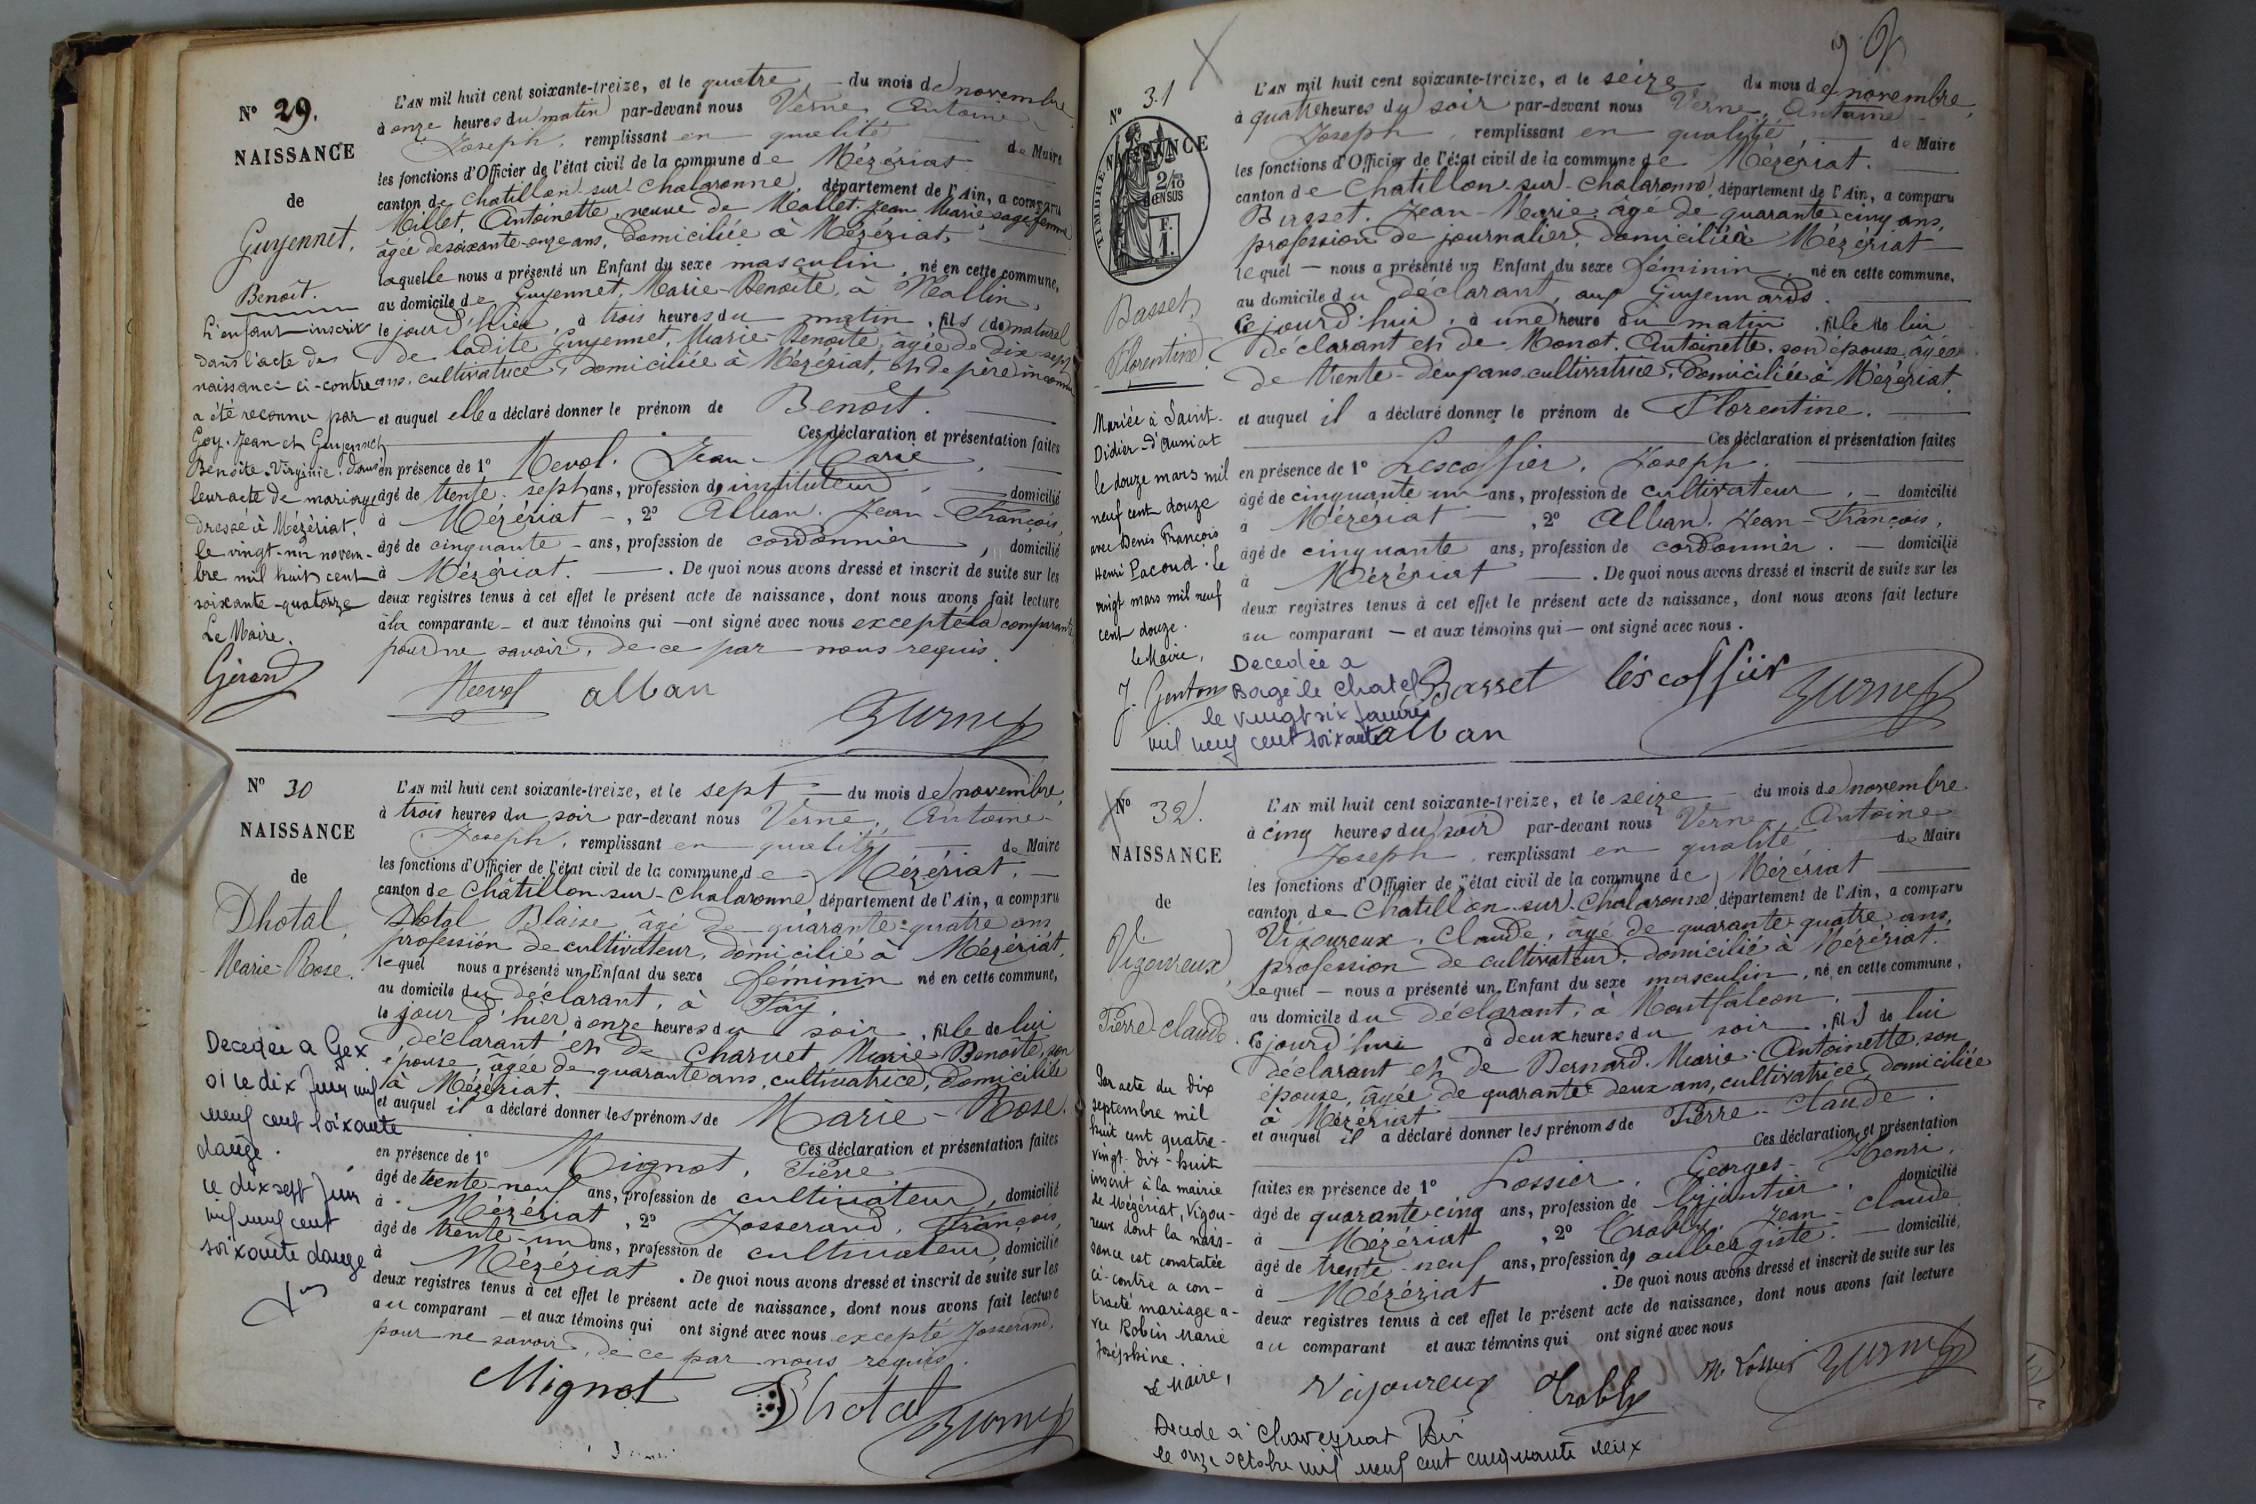 N° 29.
NAISSANCE
de
Guyennet,
Benoît.
L'enfant inscrit
dans l'acte de
naissance ci-contre
a été reconnu par
Goy Jean et Guyennet
Benoîte-Virginie dans
leur acte de mariage
dressé à Mézériat,
le vingt-un novem-
bre mil huit cent
soixante-quatorze
Le Maire,
Gérand
L'AN mil huit cent soixante-treize, et le quatre du mois de novembre
à onze heures du matin par-devant nous Verne, Antoine-
Joseph, remplissant en qualité de Maire
les fonctions d'Officier de l'état civil de la commune de Mézériat
canton de Chatillon-sur-Chalaronne, département de l'Ain, a comparu
Millet, Antoinette, veuve de Mallet Jean Marie, sage-femme
âgée de soixante-onze ans, domiciliée à Mézériat,
laquelle nous a présenté un Enfant du sexe masculin, né en cette commune,
au domicile de Guyennet, Marie-Benoîte, à
le jour d'hier, à trois heures du matin, fils (de) naturel
de ladite Guyennet, Marie-Benoîte, âgée de dix-sept
ans, cultivatrice, domiciliée à Mézériat, et de père inconnu
et auquel elle a déclaré donner le prénom de Benoît.
Ces déclaration et présentation faites
en présence de 1° Nevol, Jean-Marie,
âgé de trente-sept ans, profession de instituteur, domicilié
à Mézériat, 2° Alban, Jean-François,
âgé de cinquante ans, profession de cordonnier, domicilié
à Mézériat. De quoi nous avons dressé et inscrit de suite sur les
deux registres tenus à cet effet le présent acte de naissance, dont nous avons fait lecture
à la comparante et aux témoins qui ont signé avec nous excepté la comparante
pour ne savoir, de ce par nous requis.
Nevol alban
Verne
N° 30
NAISSANCE
de
Dhotal,
Marie Rose.
Decedée a Gex
01 le dix Juin mil
neuf cent soixante
douze.
le dix sept Juin
mil neuf cent
soixante douze
L'AN mil huit cent soixante-treize, et le sept du mois de novembre,
à trois heures du soir par-devant nous Verne, Antoine-
Joseph, remplissant en qualité de Maire
les fonctions d'Officier de l'état civil de la commune de Mézériat,
canton de Châtillon-sur-Chalaronne, département de l'Ain, a comparu
Dhotal Blaise âgé de quarante-quatre ans,
profession de cultivateur, domicilié à Mézériat,
lequel nous a présenté un Enfant du sexe féminin né en cette commune,
au domicile du déclarant, à Fay,
le jour d'hier, à onze heures du soir, fille de lui
déclarant et de Charvet, Marie Benoîte, son
épouse, âgée de quarante ans, cultivatrice, domiciliée
à Mézériat.
et auquel il a déclaré donner les prénoms de Marie-Rose.
Ces déclaration et présentation faites
en présence de 1° Mignot, Pierre
âgé de trente-neuf ans, profession de cultivateur, domicilié
à Mézériat, 2° Josserand, François,
âgé de trente-un ans, profession de cultivateur, domicilié
à Mézériat. De quoi nous avons dressé et inscrit de suite sur les
deux registres tenus à cet effet le présent acte de naissance, dont nous avons fait lecture
au comparant et aux témoins qui ont signé avec nous excepté Josserand,
pour ne savoir, de ce par nous requis.
Mignot Dhotal
Verne
N° 31
NAISSANCE
TIMBRE
2/10
EN SUS
F.
1.
Basset,
Florentine
Mariée à Saint-
Didier-d'Aussiat
le douze mars mil
neuf cent douze
avec Denis François
Henri Pacoud. le
vingt mars mil neuf
cent douze.
le Maire,
J. Genton
L'AN mil huit cent soixante-treize, et le seize du mois de novembre,
à quatre heures du soir par-devant nous Verne, Antoine
Joseph, remplissant en qualité de Maire
les fonctions d'Officier de l'état civil de la commune de Mézériat.
canton de Chatillon-sur-Chalaronne, département de l'Ain, a comparu
Basset, Jean-Marie, âgé de quarante-cinq ans,
profession de journalier, domicilié à Mézériat
lequel nous a présenté un Enfant du sexe féminin, né en cette commune,
au domicile du déclarant, aux Guyennards.
Cejourd'hui, à une heure du matin, fille de lui
déclarant et de Monot, Antoinette, son épouse, âgée
de trente-deux ans, cultivatrice, domiciliée à Mézériat
et auquel il a déclaré donner le prénom de Florentine.
Ces déclaration et présentation faites
en présence de 1° Lescoffier, Joseph,
âgé de cinquante un ans, profession de cultivateur, domicilié
à Mézériat, 2° Alban, Jean-François,
âgé de cinquante ans, profession de cordonnier. domicilié
à Mézériat. De quoi nous avons dressé et inscrit de suite sur les
deux registres tenus à cet effet le présent acte de naissance, dont nous avons fait lecture
au comparant et aux témoins qui ont signé avec nous.
Decedée a
Bagé le Chatel
le vingt six Janvier
mil neuf cent soixante
Basset léscoffier Verne
alban
N° 32.
NAISSANCE
de
Vigoureux,
Pierre-Claude.
Par acte du dix
septembre mil
huit cent quatre-
vingt-dix-huit
inscrit à la mairie
de Mézériat, Vigou-
reux dont la nais-
sance est constatée
ci-contre a con-
tracté mariage a-
vec Robin Marie
Joséphine.
Le Maire,
L'AN mil huit cent soixante-treize, et le seize du mois de novembre
à cinq heures du soir par-devant nous Verne, Antoine
Joseph, remplissant en qualité de Maire
les fonctions d'Officier de l'état civil de la commune de Mézériat
canton de Chatillon-sur-Chalaronne, département de l'Ain, a comparu
Vigoureux, Claude, âgé de quarante-quatre ans,
profession de cultivateur, domicilié à Mézériat.
lequel nous a présenté un Enfant du sexe masculin, né en cette commune,
au domicile du déclarant, à Montfalcon,
Cejourd'hui à deux heures du soir, fils de lui
déclarant et de Bernard, Marie-Antoinette, son
épouse, âgée de quarante-deux ans, cultivatrice, domiciliée
à Mézériat
et auquel il a déclaré donner les prénoms de Pierre-Claude.
Ces déclaration et présentation
faites en présence de 1° Lossier, Georges-Henri,
âgé de quarante cinq ans, profession de domicilié
à Mézériat, 2° Trably, Jean-Claude
âgé de trente-neuf ans, profession de aubergiste. domicilié,
à Mézériat. De quoi nous avons dressé et inscrit de suite sur les
deux registres tenus à cet effet le présent acte de naissance, dont nous avons fait lecture
au comparant et aux témoins qui ont signé avec nous
Vigoureux Trably H Lossier Verne
Decede a Chaveyriat
le onze octobre mil neuf cent cinquante deux